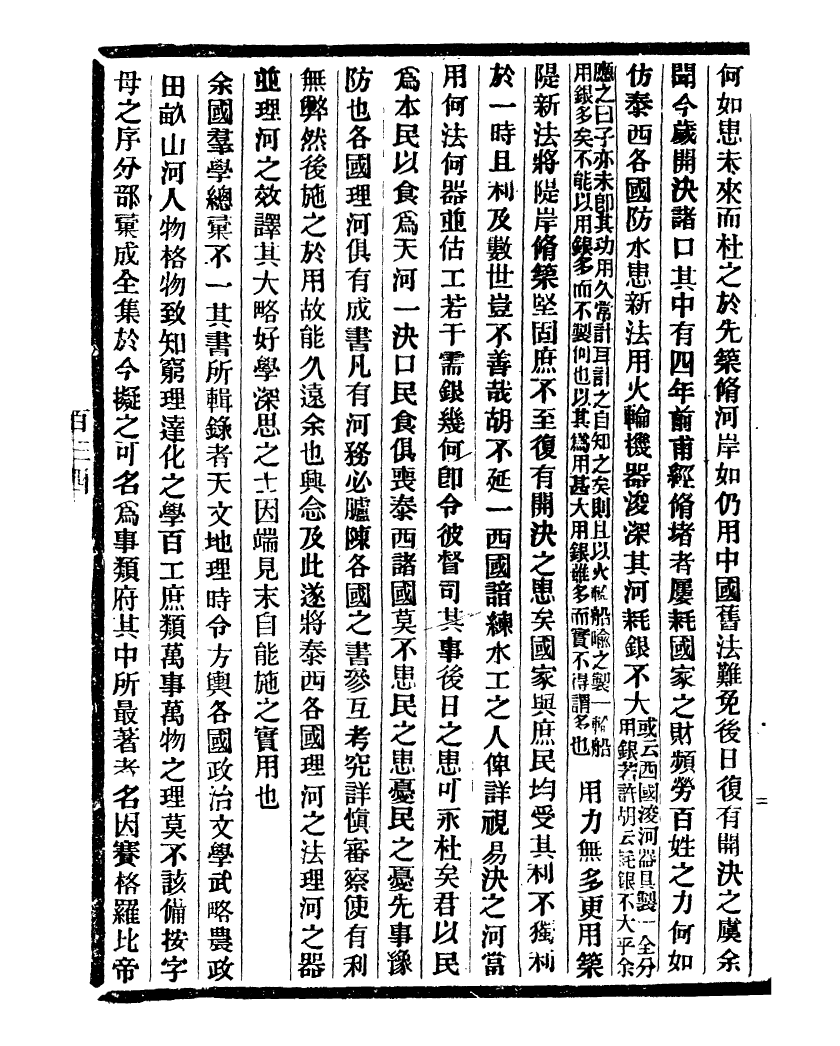 何如患未來而杜之於先築脩河岸如仍用中國舊法難免後日復有開決之虞余
聞今歲開決諸口其中有四年前甫經脩堵者屢耗國家之財頻勞百姓之力何如
仿泰西各國防水患新法用火輪機器浚深其河耗銀不大或云西國浚河器具製一全分
用銀若許胡云耗銀不大乎余
應之曰子亦未即其功用久常計耳計之自知之矣則且以火輪船喻之製一輪船
用銀多矣不能以用銀多而不製何也以其爲用甚大用銀雖多而實不得謂多也用力無多更用築
隄新法將隄岸脩築堅固庶不至復有開決之患矣國家與庶民均受其利不獨利
於一時且利及數世豈不善哉胡不延一西國諳練水工之人俾詳視易決之河當
用何法何器並估工若干需銀幾何即令彼督司其事後日之患可永杜矣君以民
爲本民以食爲天河一決口民食俱喪泰西諸國莫不患民之患憂民之憂先事豫
防也各國理河俱有成書凡有河務必臚陳各國之書參互考究詳慎審察使有利
無弊然後施之於用故能久遠余也興念及此遂將泰西各國理河之法理河之器
並理河之效譯其大略好學深思之士因端見末自能施之實用也
余國羣學總彙不一其書所輯錄者天文地理時令方輿各國政治文學武略農政
田畝山河人物格物致知窮理達化之學百工庶類萬事萬物之理莫不該備按字
母之序分部彙成全集於今擬之可名爲事類府其中所最著者名因賽格羅比帝
百三四